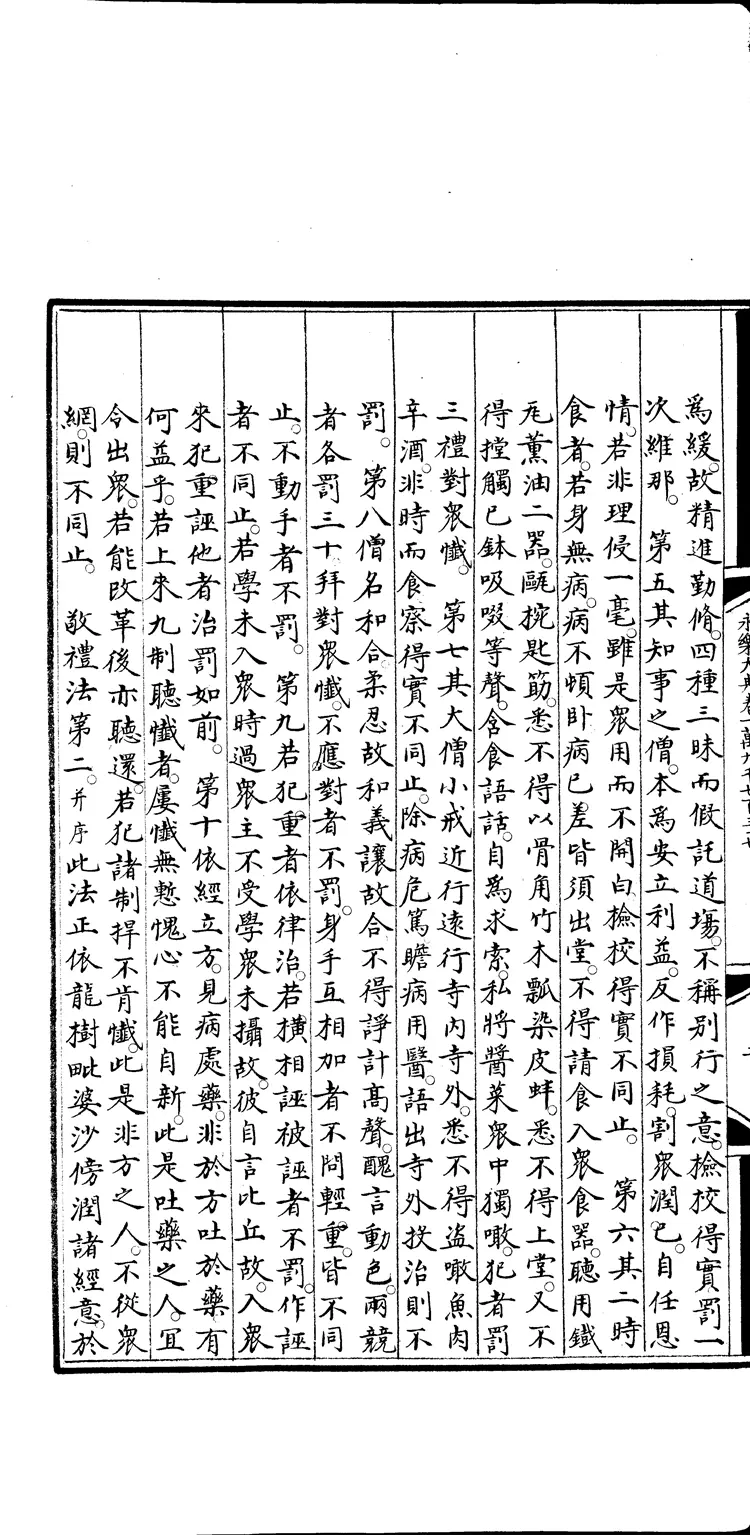 為緩。故精進勤脩。四種三昧而假託道場。不稱別行之意。檢挍得實罰一
次維那。　第五其知事之僧。本為安立利益。反作損耗。割眾潤己。自任恩
情。若非理侵一毫。雖是眾用而不開白。檢挍得實不同止。　第六其二時
食者。若身無病。病不頓卧病已差皆須出堂。不得請食入眾食器。聽用鐵
瓦薰油二器。甌捥匙筯。悉不得以骨角竹木瓢染皮蚌。悉不得上堂。又不
得摚觸已鉢吸啜等聲。含食語話。自為求索。私將醬菜眾中獨噉。犯者罰
三禮對眾懺。　第七其大僧小戒近行遠行寺內寺外。悉不得盜噉魚肉
辛酒。非時而食察得實不同止。除病危篤瞻病用醫。語出寺外投治則不
罰。　第八僧名和合柔忍故和義讓故合不得諍計高聲。醜言動色。兩競
者各罰三十拜對眾懺。不應對者不罰。身手互相加者不問輕重。皆不同
止。不動手者不罰。　第九若犯重者依律治。若橫相誣被誣者不罰。作誣
者不同止。若學未入眾時過眾主不受學眾未攝故。彼自言比丘故。入眾
來犯重誣他者治罰如前。　第十依經立方。見病處藥。非於方吐於藥有
何益乎。若上來九制聽懺者。屢懺無慙愧心不能自新。此是吐藥之人。冝
令出眾。若能改革後亦聽還。若犯諸制捍不肯懺。此是非方之人。不從眾
網。則不同止。　敬禮法第二。并序此法正依龍樹毗婆沙傍潤諸經意。於